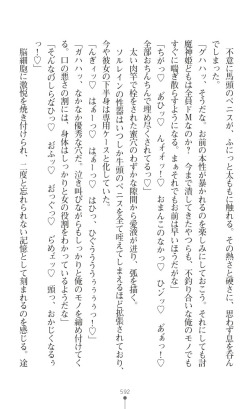 不意に馬頭のペニスが、ぷにっと太ももに触れる。その熱さと硬さに、思わず息を呑ん
でしまった。
「ゲハハッ、そうだな、お前の本性が暴かれるのを楽しみにしておこう。それにしても討
魔神姫どもは全員ドMなのか? 今まで潰してきたやつらも、不釣り合いな俺のモノでも
すぐに喘ぎ散らすようになる。まぁそれでもお前は早いほうだがな」
「ちがっ♡ あひッ♡ んぎォッ! おまんこのなかっ♡ ひンッ♡ あひッ♡
全部おちんちんで埋め尽くされてるっ♡」
太い肉竿で栓をされた蜜穴のわずかな隙間から愛液が迸り、弧を描く。
ソルレインの性器はいつしか牛頭のペニスを全て咥えてしまえるほど拡張されており、
今や彼女の下半身は専用ケースと化していた。
「んぎィッ♡ はぁーっ♡ はぁーっ♡ はひっ、ひぐぅぅぅぅぅっっ♡」
「ガハハッ、なかなか優秀な穴だ。泣き叫びながらもしっかりと俺のモノを締め付けてく
る。口の悪さの割には、身体はしっかりと女の役割をわかっているようだな」
「そんなのしらなひっ♡ おふっ♡ おっぐっ♡ らめェッ♡ 頭っ、おかしくなるぅ
っっ♡」
脳細胞に激悦を焼き付けられ、一度と忘れられない記憶として刻まれるのを感じる。達
592